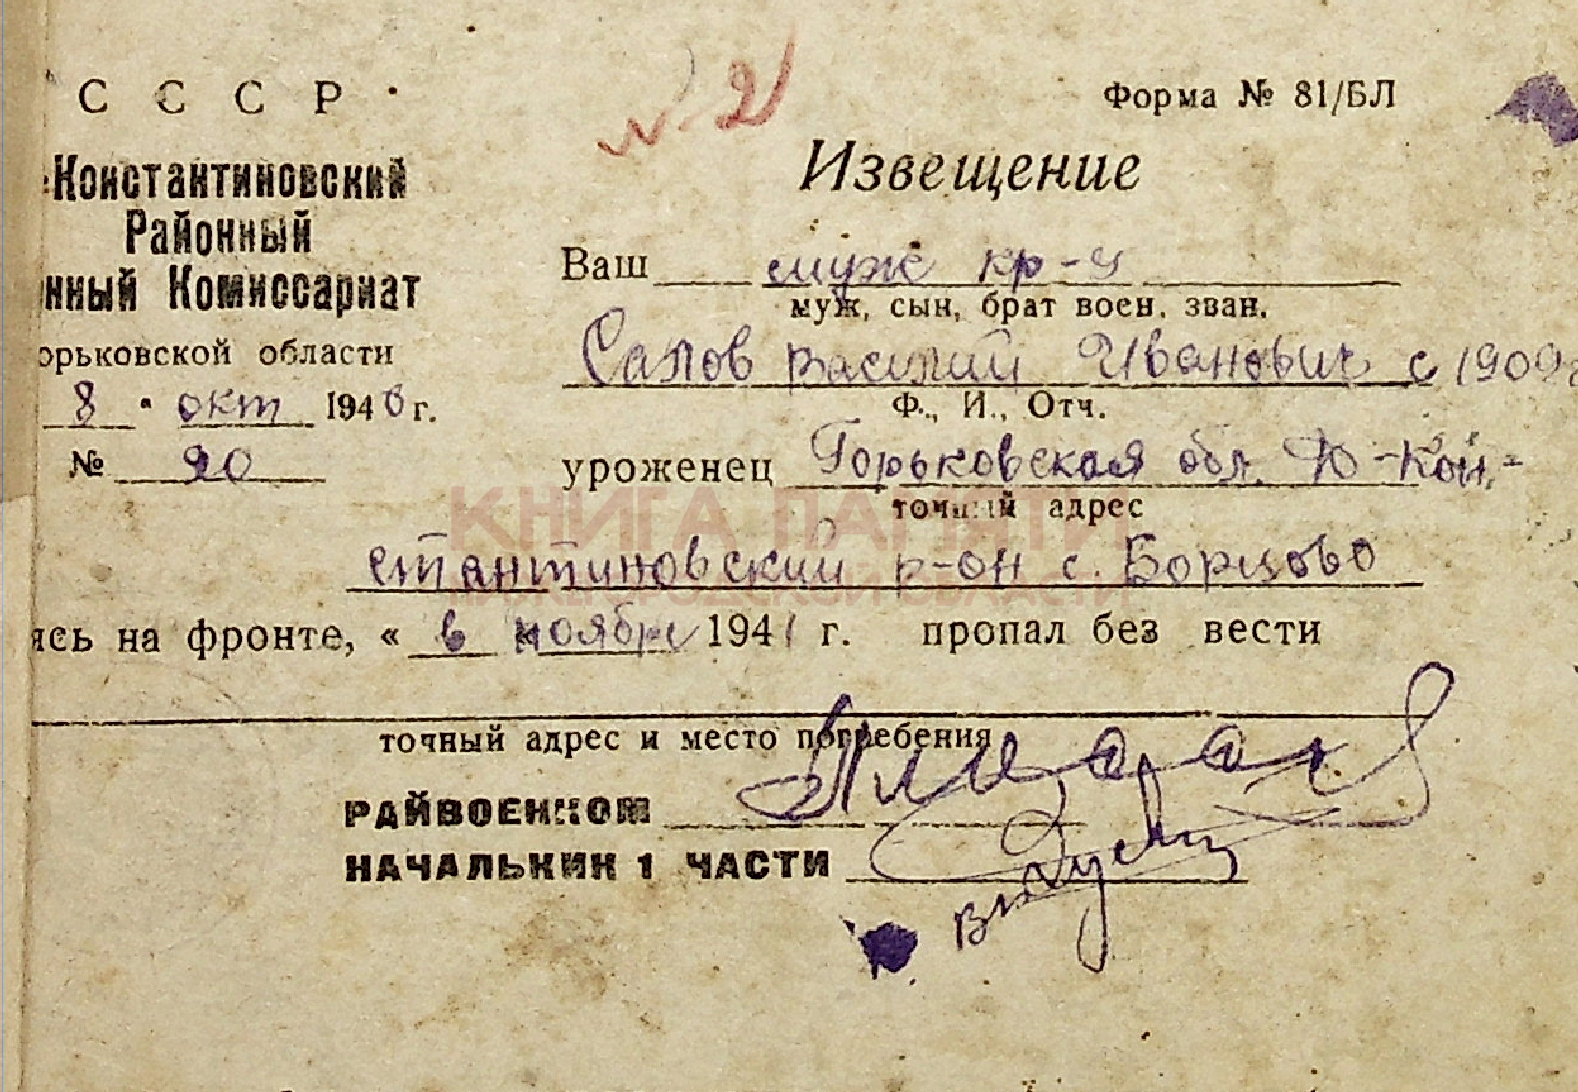 СССР
Константиновский
Районный
нный Комиссариат
орьковской области
8 окт 1946 г.
№ 20
№ 2
Форма № 81/БЛ
Извещение
Ваш муж кр-ц
муж, сын, брат воен. зван.
Сапов Василий Иванович с 1909г
Ф., И., Отч.
уроженец Горьковская обл. Д-Кон-
точный адрес
стантиновский р-он с. Борцово
ясь на фронте, « в ноябре 1941 г. пропал без вести
точный адрес и место погребения
РАЙВОЕНКОМ
НАЧАЛЬКИК 1 ЧАСТИ
КНИГА ПАМЯТИ
НИЖЕГОРОДСКОЙ ОБЛАСТИ